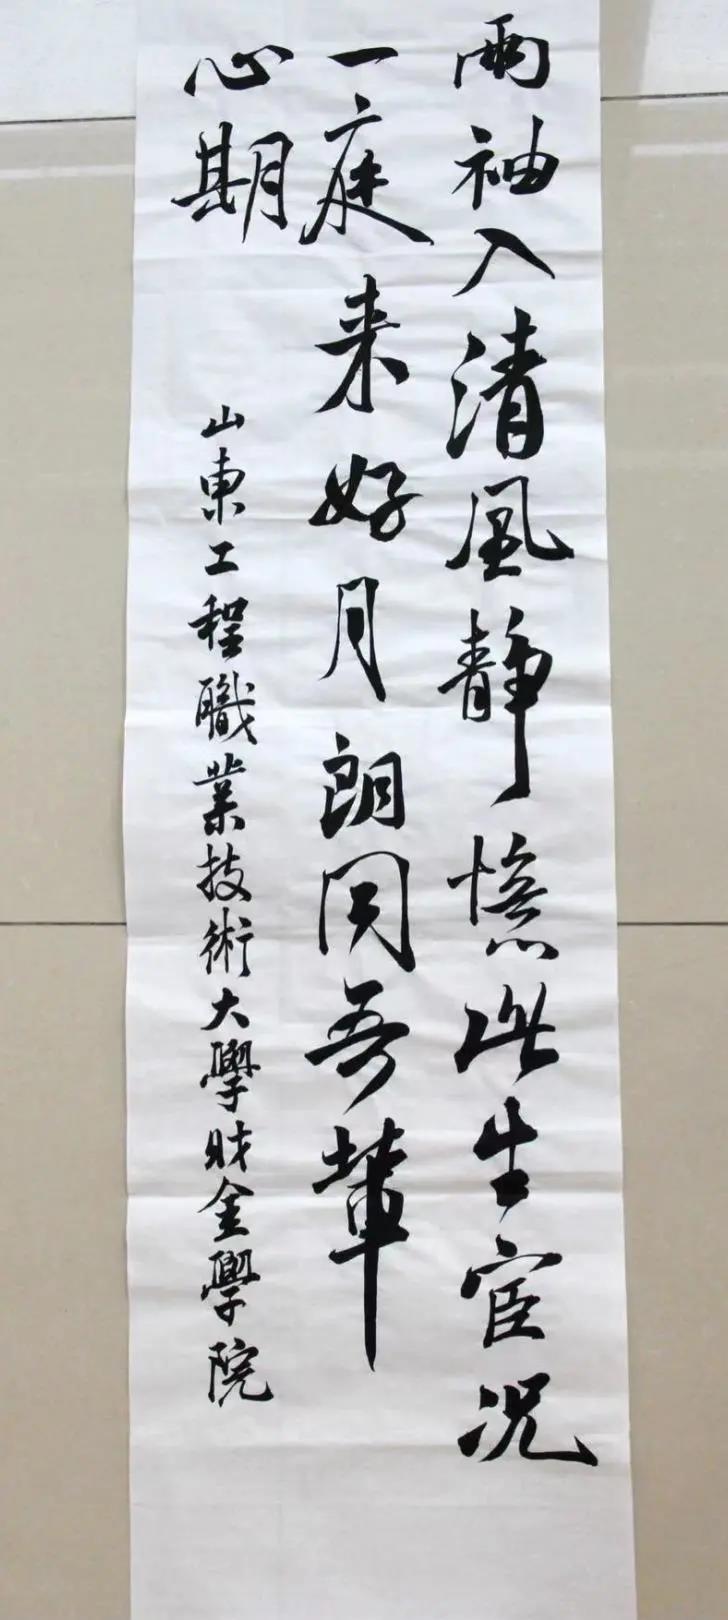 兩袖入清風靜憶此生宦况
一庭来好月朗同吾輩
心期
山東工程職業技術大學財金學院